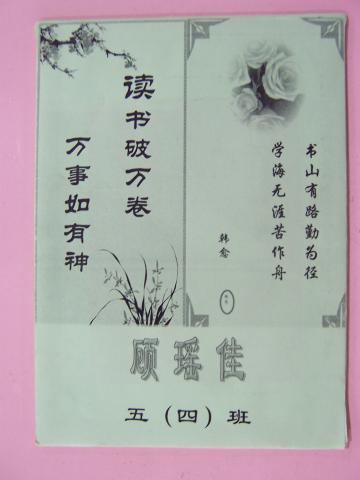 读书破万卷
万事如有神
书山有路勤为径
学海无涯苦作舟
韩愈
顾瑶佳
五（四）班